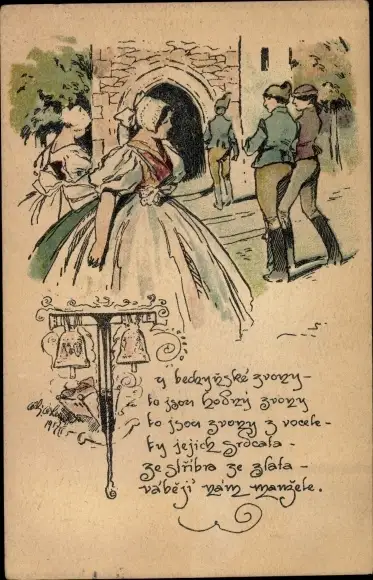 ty bechyňské zvony -
to jsou hodný zvony
to jsou zvony z vocele -
ty jejich srdcata -
ze stříbra ze zlata -
vábějí nám manžele.